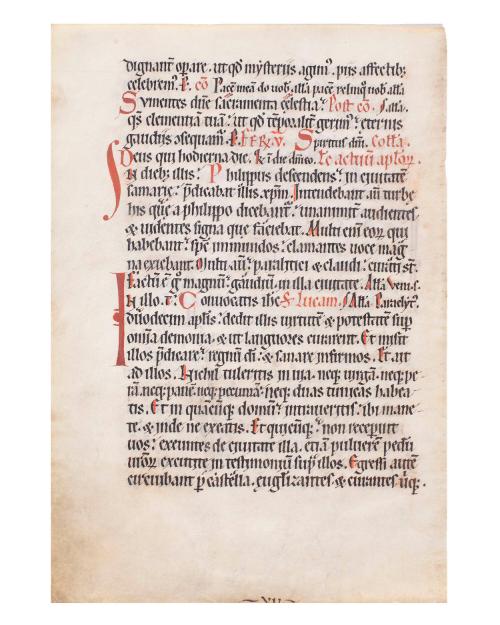 dignant̃ op̃are. ut qd̃ mysteriis agim᷒. piis affectib;
celebrem᷒. P. cõ Pacẽ meã do uob̃. alla pacẽ relinq̃ uob̃ alla
Sumentes dñe sacramenta celestia: Post cõ. Alla.
qs̃ clementiã tuã: ut qd̃ tẽporalit̃ gerim᷒: eternis
gaudiis ɔsequam᷒. Spiritus dñi. Coll̃a.
Deus qui hodierna die. K̃ ĩ die dñico. Le actuũ apl̃oꝝ.
IN dieb; illis: Philippus descendens ĩ ciuitatẽ
samarie: p̃dicabat illis xp̃m. Intendebant aũ turbe
his que a philippo dicebant᷒: unanimit̃ audientes
& uidentes signa que faciebat. Multi enĩ eoꝝ qui
habebant sp̃c inmundos: clamantes uoce mag
na exiebant. Multi aũ: paralitici & claudi: curati st̃.
Factũ ẽ g̊ magnũ gaudiũ in illa ciuitate. All̃a Veni s.
IN illo t̃. Conuocatis ihc Sc̃ Lucam. All̃a Paraclyt᷒.
duodecim apl̃is: dedit illis uirtutẽ & potestatẽ sup̃
omĩa demonia. & ut languores curarent. Et misit
illos p̃dicare: regnũ dĩ: & sanare infirmos. Et ait
ad illos. Nichil tuleritis in uia. neq; uirgã. neq; pe
rã. neq; panẽ. neq; pecuniã. neq; duas tunicas habea
tis. Et in quãcũq; domũ: intraueritis: ibi mane
te. & inde ne exeatis. Et quicũq;: non receperit
uos: exeuntes de ciuitate illa. etiã puluerẽ pedũ
ur̃oꝝ excutite in testimoniũ sup̃ illos. Egressi autẽ
circuibant p̃ castella. euglizantes. & curantes ubiq;.
XV